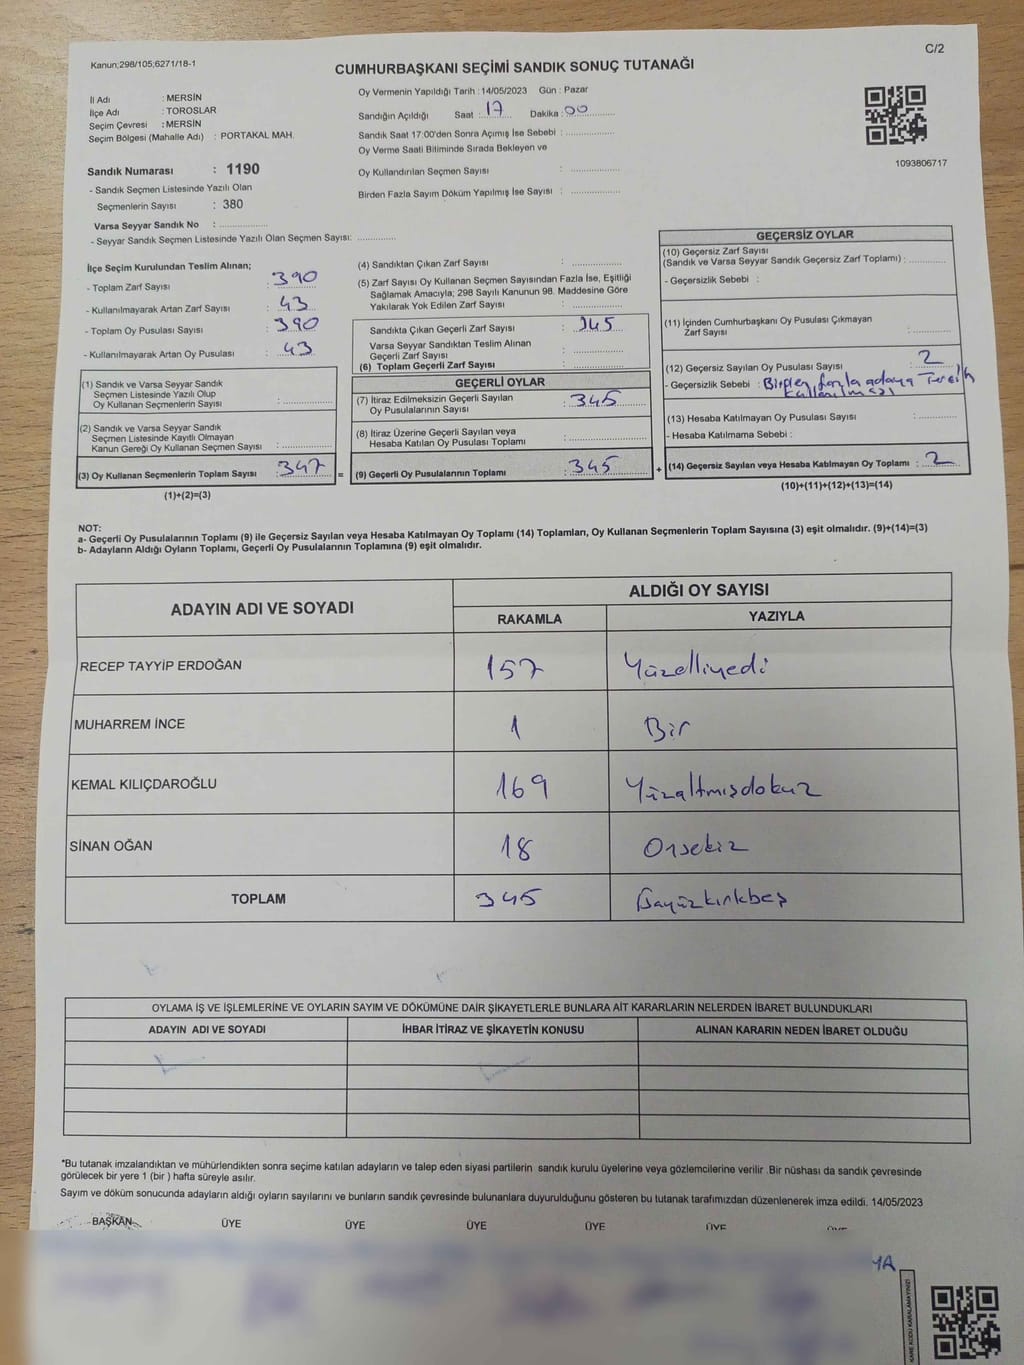 Kanun;298/105;6271/18-1
C/2
CUMHURBAŞKANI SEÇİMİ SANDIK SONUÇ TUTANAĞI
İl Adı : MERSİN
İlçe Adı : TOROSLAR
Seçim Çevresi : MERSİN
Seçim Bölgesi (Mahalle Adı) : PORTAKAL MAH.
Sandık Numarası : 1190
- Sandık Seçmen Listesinde Yazılı Olan
Seçmenlerin Sayısı : 380
Varsa Seyyar Sandık No :
- Seyyar Sandık Seçmen Listesinde Yazılı Olan Seçmen Sayısı:
Oy Vermenin Yapıldığı Tarih : 14/05/2023 Gün : Pazar
Sandığın Açıldığı Saat : 17 Dakika : 00
Sandık Saat 17:00'den Sonra Açımış İse Sebebi :
Oy Verme Saati Bitiminde Sırada Bekleyen ve
Oy Kullandırılan Seçmen Sayısı :
Birden Fazla Sayım Döküm Yapılmış İse Sayısı :
1093806717
İlçe Seçim Kurulundan Teslim Alınan;
- Toplam Zarf Sayısı : 390
- Kullanılmayarak Artan Zarf Sayısı : 43
- Toplam Oy Pusulası Sayısı : 390
- Kullanılmayarak Artan Oy Pusulası : 43
(1) Sandık ve Varsa Seyyar Sandık
Seçmen Listesinde Yazılı Olup
Oy Kullanan Seçmenlerin Sayısı :
(2) Sandık ve Varsa Seyyar Sandık
Seçmen Listesinde Kayıtlı Olmayan
Kanun Gereği Oy Kullanan Seçmen Sayısı :
(3) Oy Kullanan Seçmenlerin Toplam Sayısı : 347 =
(1)+(2)=(3)
(4) Sandıktan Çıkan Zarf Sayısı :
(5) Zarf Sayısı Oy Kullanan Seçmen Sayısından Fazla İse, Eşitliği
Sağlamak Amacıyla; 298 Sayılı Kanunun 98. Maddesine Göre
Yakılarak Yok Edilen Zarf Sayısı :
Sandıkta Çıkan Geçerli Zarf Sayısı : 345
Varsa Seyyar Sandıktan Teslim Alınan
Geçerli Zarf Sayısı :
(6) Toplam Geçerli Zarf Sayısı :
GEÇERLİ OYLAR
(7) İtiraz Edilmeksizin Geçerli Sayılan
Oy Pusulalarının Sayısı : 345
(8) İtiraz Üzerine Geçerli Sayılan veya
Hesaba Katılan Oy Pusulası Toplamı :
(9) Geçerli Oy Pusulalarının Toplamı : 345 +
GEÇERSİZ OYLAR
(10) Geçersiz Zarf Sayısı
(Sandık ve Varsa Seyyar Sandık Geçersiz Zarf Toplamı) :
- Geçersizlik Sebebi :
(11) İçinden Cumhurbaşkanı Oy Pusulası Çıkmayan
Zarf Sayısı :
(12) Geçersiz Sayılan Oy Pusulası Sayısı : 2
- Geçersizlik Sebebi : Birden fazla adaya Tercih
kullanılması
(13) Hesaba Katılmayan Oy Pusulası Sayısı :
- Hesaba Katılmama Sebebi :
(14) Geçersiz Sayılan veya Hesaba Katılmayan Oy Toplamı : 2
(10)+(11)+(12)+(13)=(14)
NOT:
a- Geçerli Oy Pusulalarının Toplamı (9) ile Geçersiz Sayılan veya Hesaba Katılmayan Oy Toplamı (14) Toplamları, Oy Kullanan Seçmenlerin Toplam Sayısına (3) eşit olmalıdır. (9)+(14)=(3)
b- Adayların Aldığı Oyların Toplamı, Geçerli Oy Pusulalarının Toplamına (9) eşit olmalıdır.
ADAYIN ADI VE SOYADI
ALDIĞI OY SAYISI
RAKAMLA YAZIYLA
RECEP TAYYİP ERDOĞAN 157 Yüzelliyedi
MUHARREM İNCE 1 Bir
KEMAL KILIÇDAROĞLU 169 Yüzaltmışdokuz
SİNAN OĞAN 18 Onsekiz
TOPLAM 345 üçyüzkırkbeş
OYLAMA İŞ VE İŞLEMLERİNE VE OYLARIN SAYIM VE DÖKÜMÜNE DAİR ŞİKAYETLERLE BUNLARA AİT KARARLARIN NELERDEN İBARET BULUNDUKLARI
ADAYIN ADI VE SOYADI İHBAR İTİRAZ VE ŞİKAYETİN KONUSU ALINAN KARARIN NEDEN İBARET OLDUĞU
*Bu tutanak imzalandıktan ve mühürlendikten sonra seçime katılan adayların ve talep eden siyasi partilerin sandık kurulu üyelerine veya gözlemcilerine verilir .Bir nüshası da sandık çevresinde
görülecek bir yere 1 (bir ) hafta süreyle asılır.
Sayım ve döküm sonucunda adayların aldığı oyların sayılarını ve bunların sandık çevresinde bulunanlara duyurulduğunu gösteren bu tutanak tarafımızdan düzenlenerek imza edildi. 14/05/2023
BAŞKAN ÜYE ÜYE ÜYE ÜYE ÜYE ÜYE